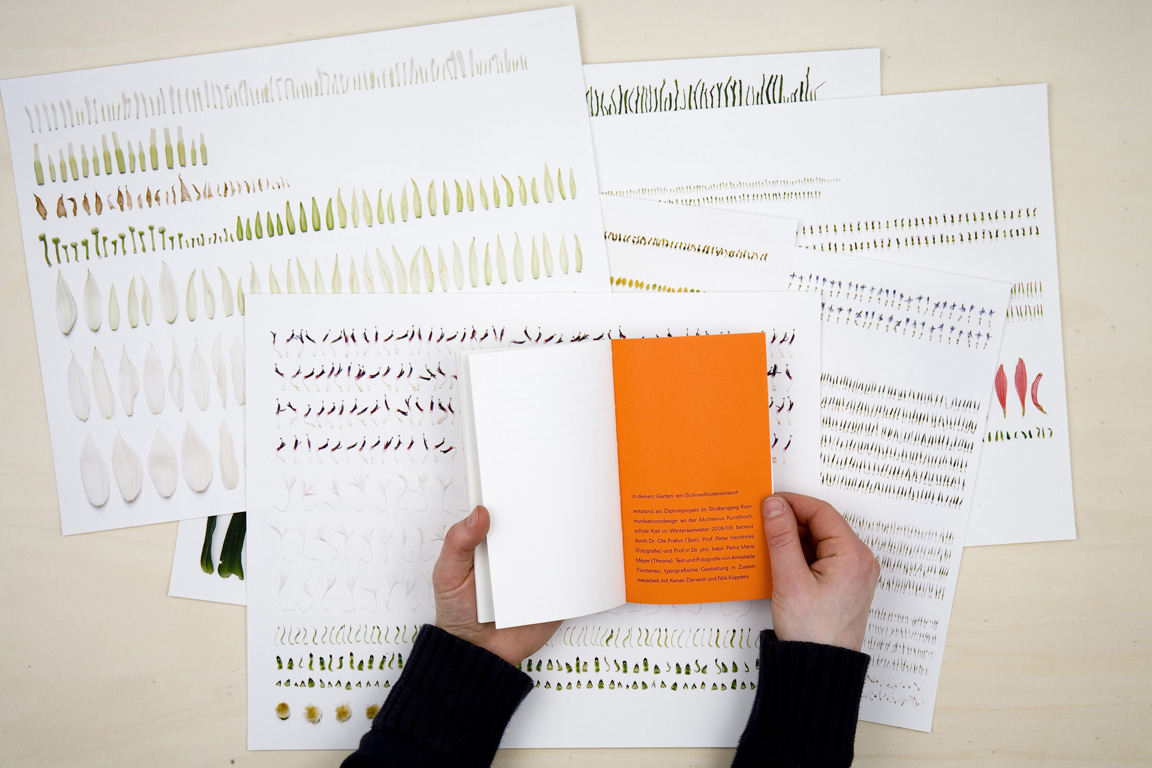 In deinem Garten: ein Schneeflockenstrauch
entstand als Diplomprojekt im Studiengang Kom-
munikationsdesign an der Muthesius Kunsthoch-
schule Kiel im Wintersemester 2008/09, betreut
durch Dr. Ole Frahm (Text), Prof. Peter Hendricks
(Fotografie) und Prof.in Dr. phil. habil. Petra Maria
Meyer (Theorie). Text und Fotografie von Annabelle
Fürstenau, typografische Gestaltung in Zusam-
menarbeit mit Kenan Darwich und Nils Küppers.